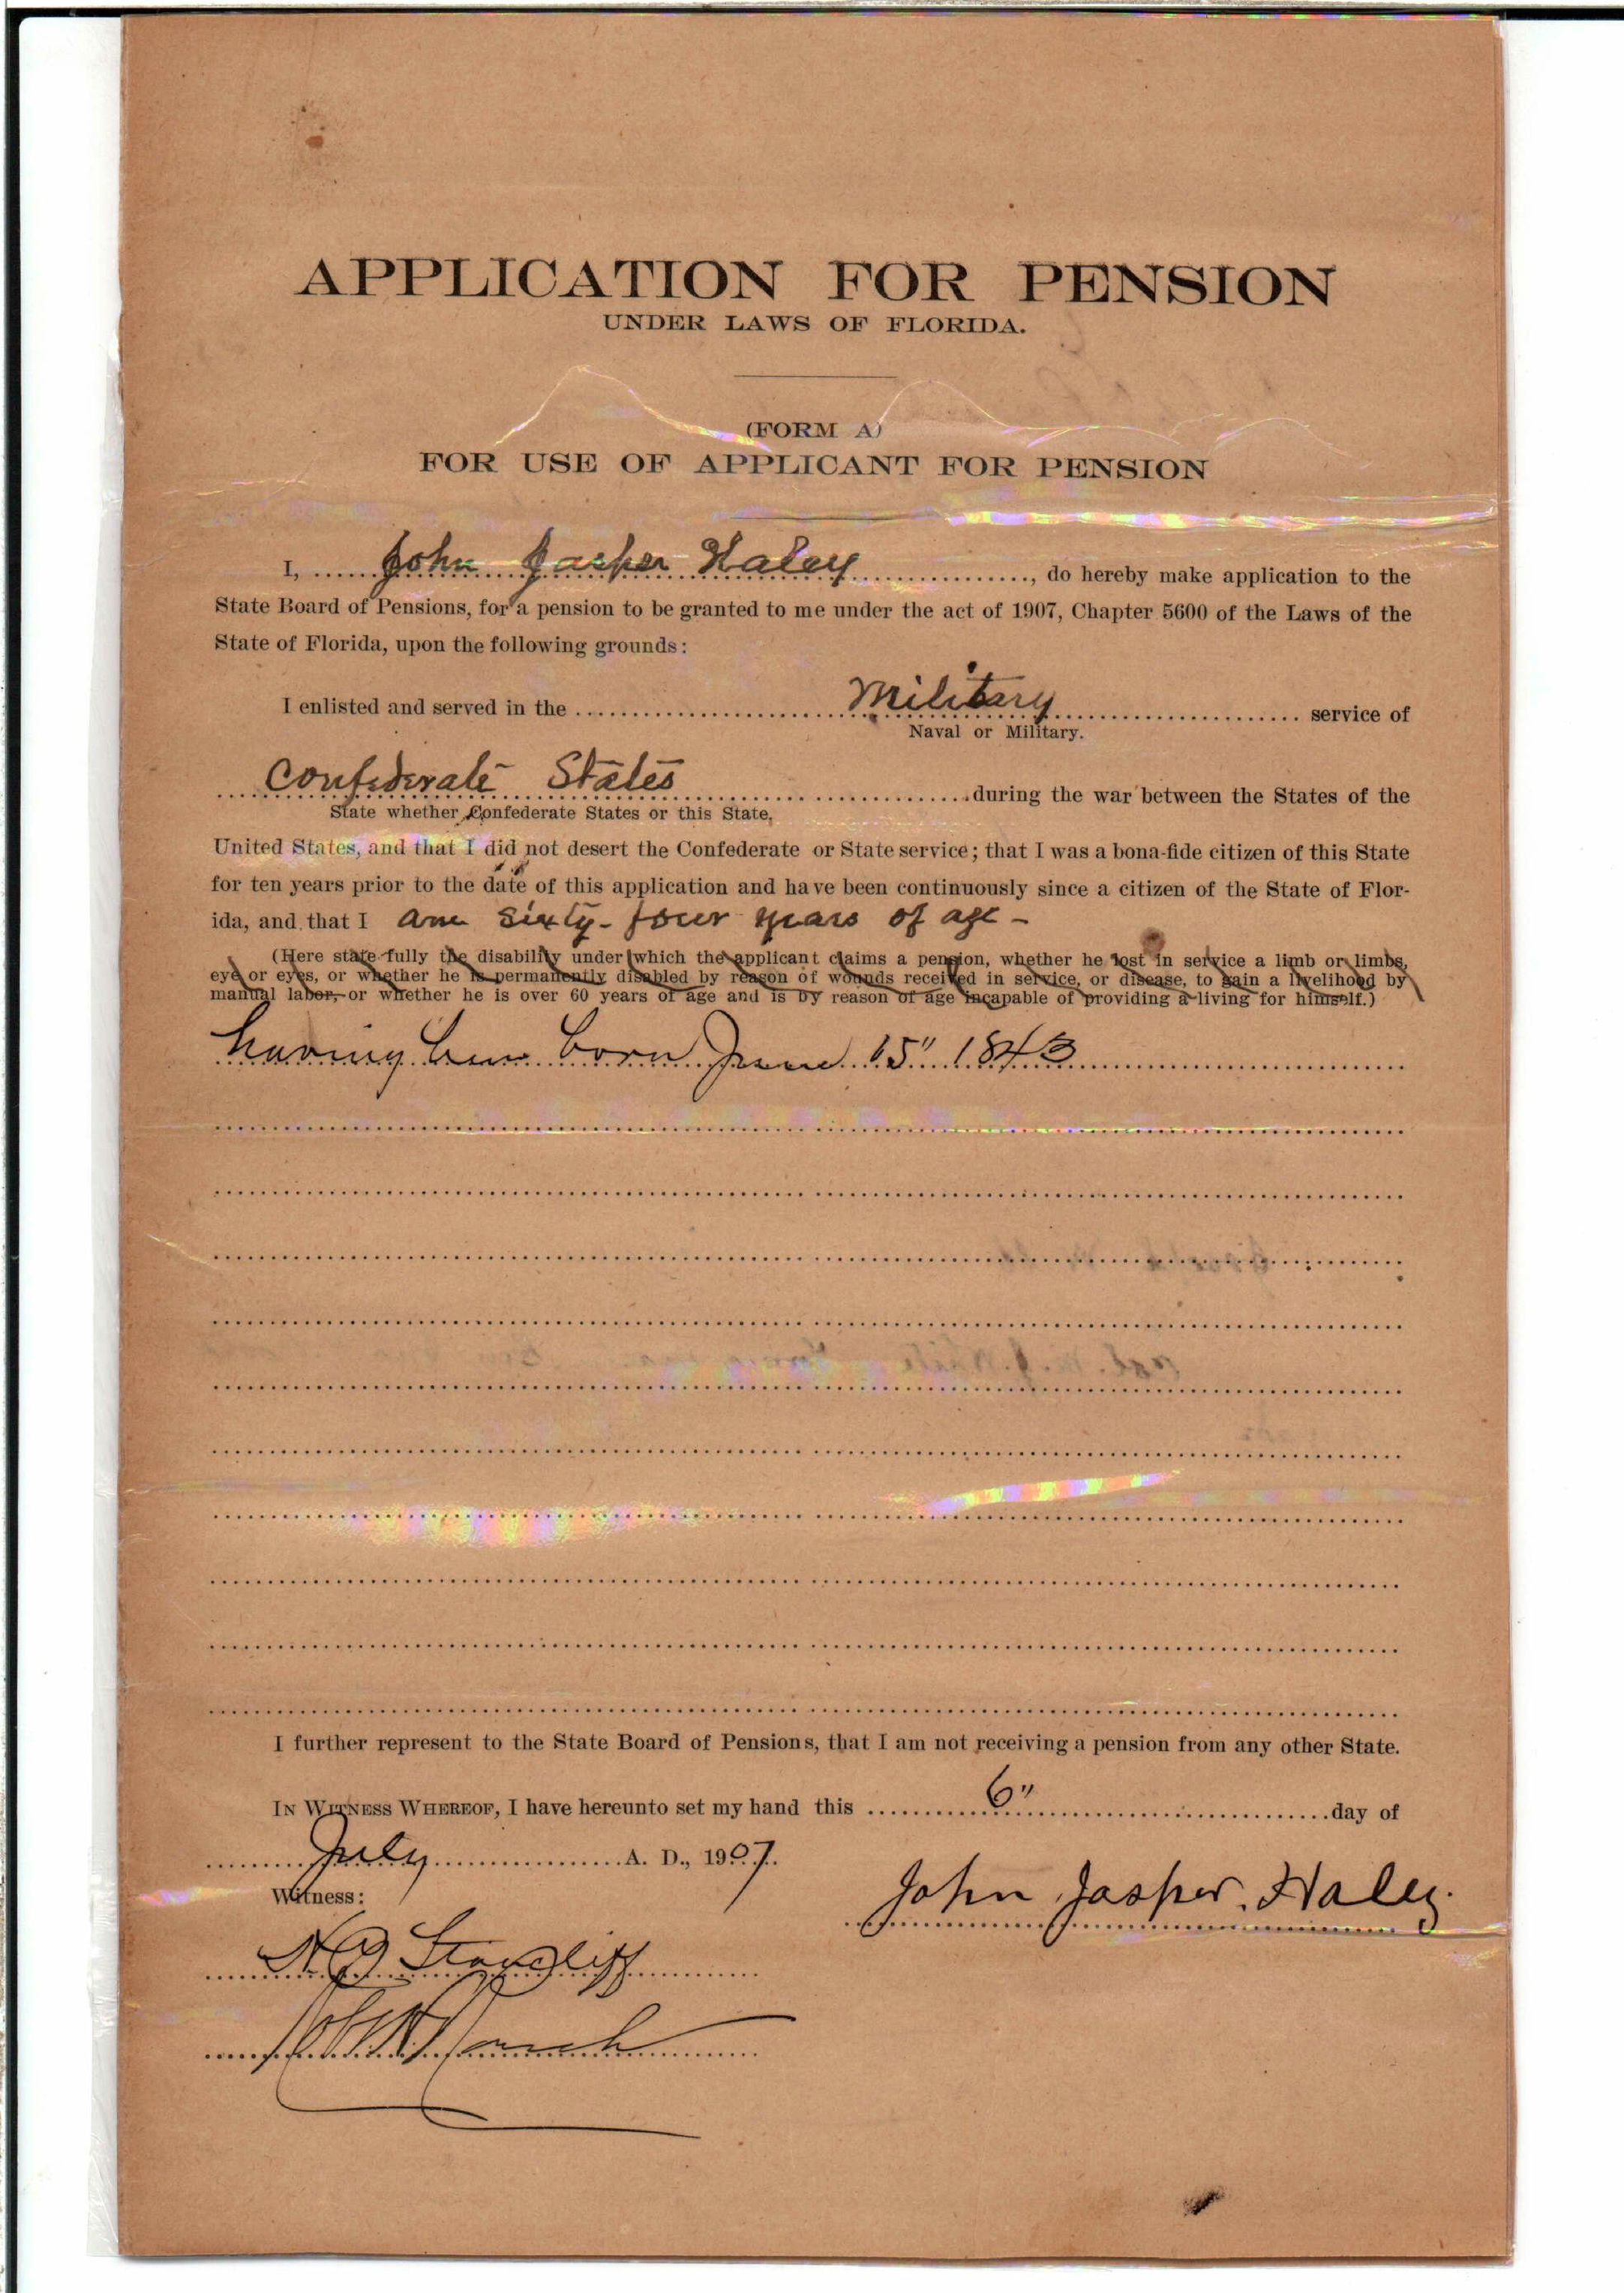 APPLICATION FOR PENSION
UNDER LAWS OF FLORIDA.
(FORM A)
FOR USE OF APPLICANT FOR PENSION
I, John Jasper Haley, do hereby make application to the
State Board of Pensions, for a pension to be granted to me under the act of 1907, Chapter 5600 of the Laws of the
State of Florida, upon the following grounds:
I enlisted and served in the Military service of
Naval or Military.
Confederate States during the war between the States of the
State whether Confederate States or this State,
United States, and that I did not desert the Confederate or State service; that I was a bona-fide citizen of this State
for ten years prior to the date of this application and have been continuously since a citizen of the State of Flor-
ida, and that I am Sixty-four years of age -
(Here state fully the disability under which the applicant claims a pension, whether he lost in service a limb or limbs,
eye or eyes, or whether he is permanently disabled by reason of wounds received in service, or disease, to gain a livelihood by
manual labor, or whether he is over 60 years of age and is by reason of age incapable of providing a living for himself.)
having been born June 15" 1843
I further represent to the State Board of Pensions, that I am not receiving a pension from any other State.
IN WITNESS WHEREOF, I have hereunto set my hand this 6" day of
July A. D., 1907.
Witness:
John Jasper Haley.